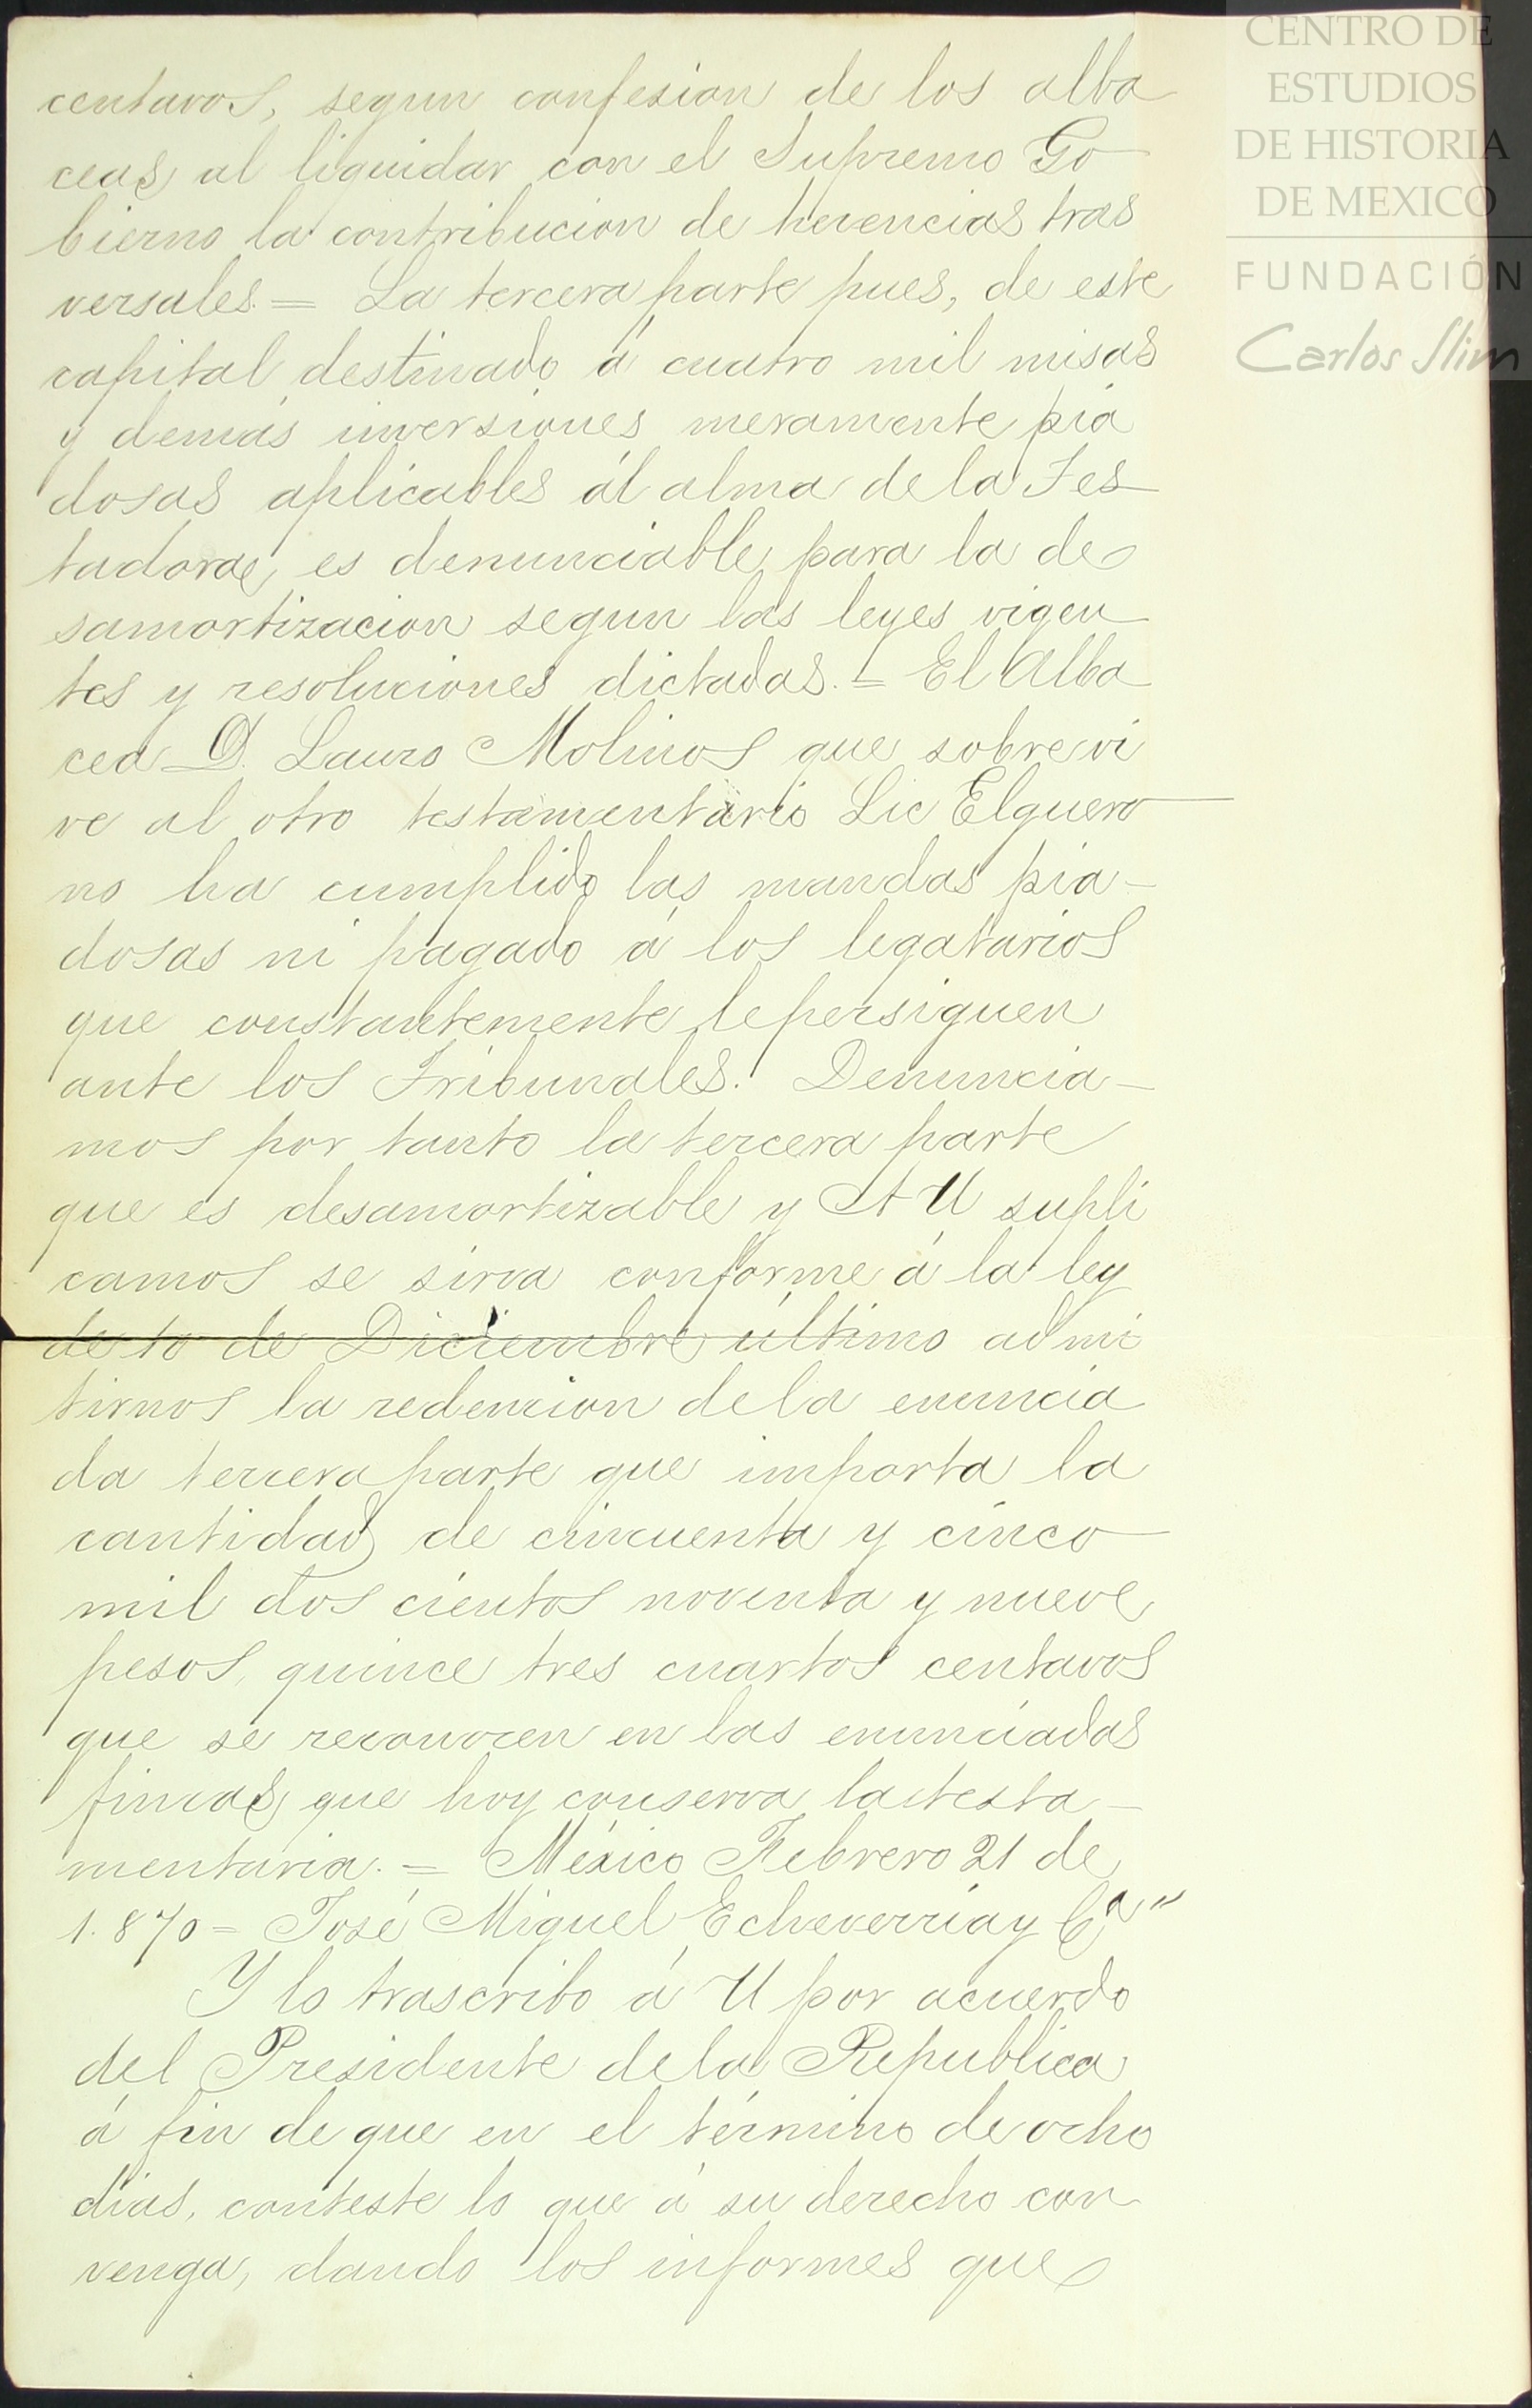 CENTRO DE
ESTUDIOS
DE HISTORIA
DE MEXICO
FUNDACIÓN
Carlos Slim
centavos, segun confesion de los alba
ceas al liquidar con el Supremo Go
bierno la contribucion de herencias tras
versales.= La tercera parte pues, de este
capital destinado á cuatro mil misas
y demás inversiones meramente pia
dosas aplicables ál alma de la Tes
tadora, es denunciable para la de
samortizacion segun las leyes vigen
tes y resoluciones dictadas.= El Alba
cea D. Lauro Molinos que sobrevi
ve al otro testamentario Lic Elguero
no ha cumplido las mandas pia-
dosas ni pagado á los legatarios
que constantemente le persiguen
ante los Tribunales. Denuncia-
mos por tanto la tercera parte
que es desamortizable y A U supli
camos se sirva conforme á la ley
de 10 de Diciembre último admi
tirnos la redencion de la enuncia
da tercera parte que importa la
cantidad de cincuenta y cinco
mil dos cientos noventa y nueve
pesos, quince tres cuartos centavos
que se reconocen en las enunciadas
fincas que hoy conserva la testa-
mentaria.= México Febrero 21 de
1.870= José Miguel Echeverría y Cª"
Y lo trascribo á U por acuerdo
del Presidente de la Republica
á fin de que en el término de ocho
dias, conteste lo que á su derecho con
venga, dando los informes que